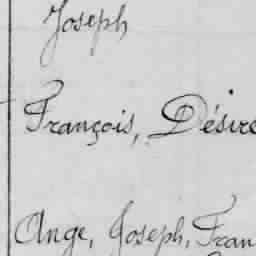 Joseph
François, Désiré
Ange, Joseph, Fran